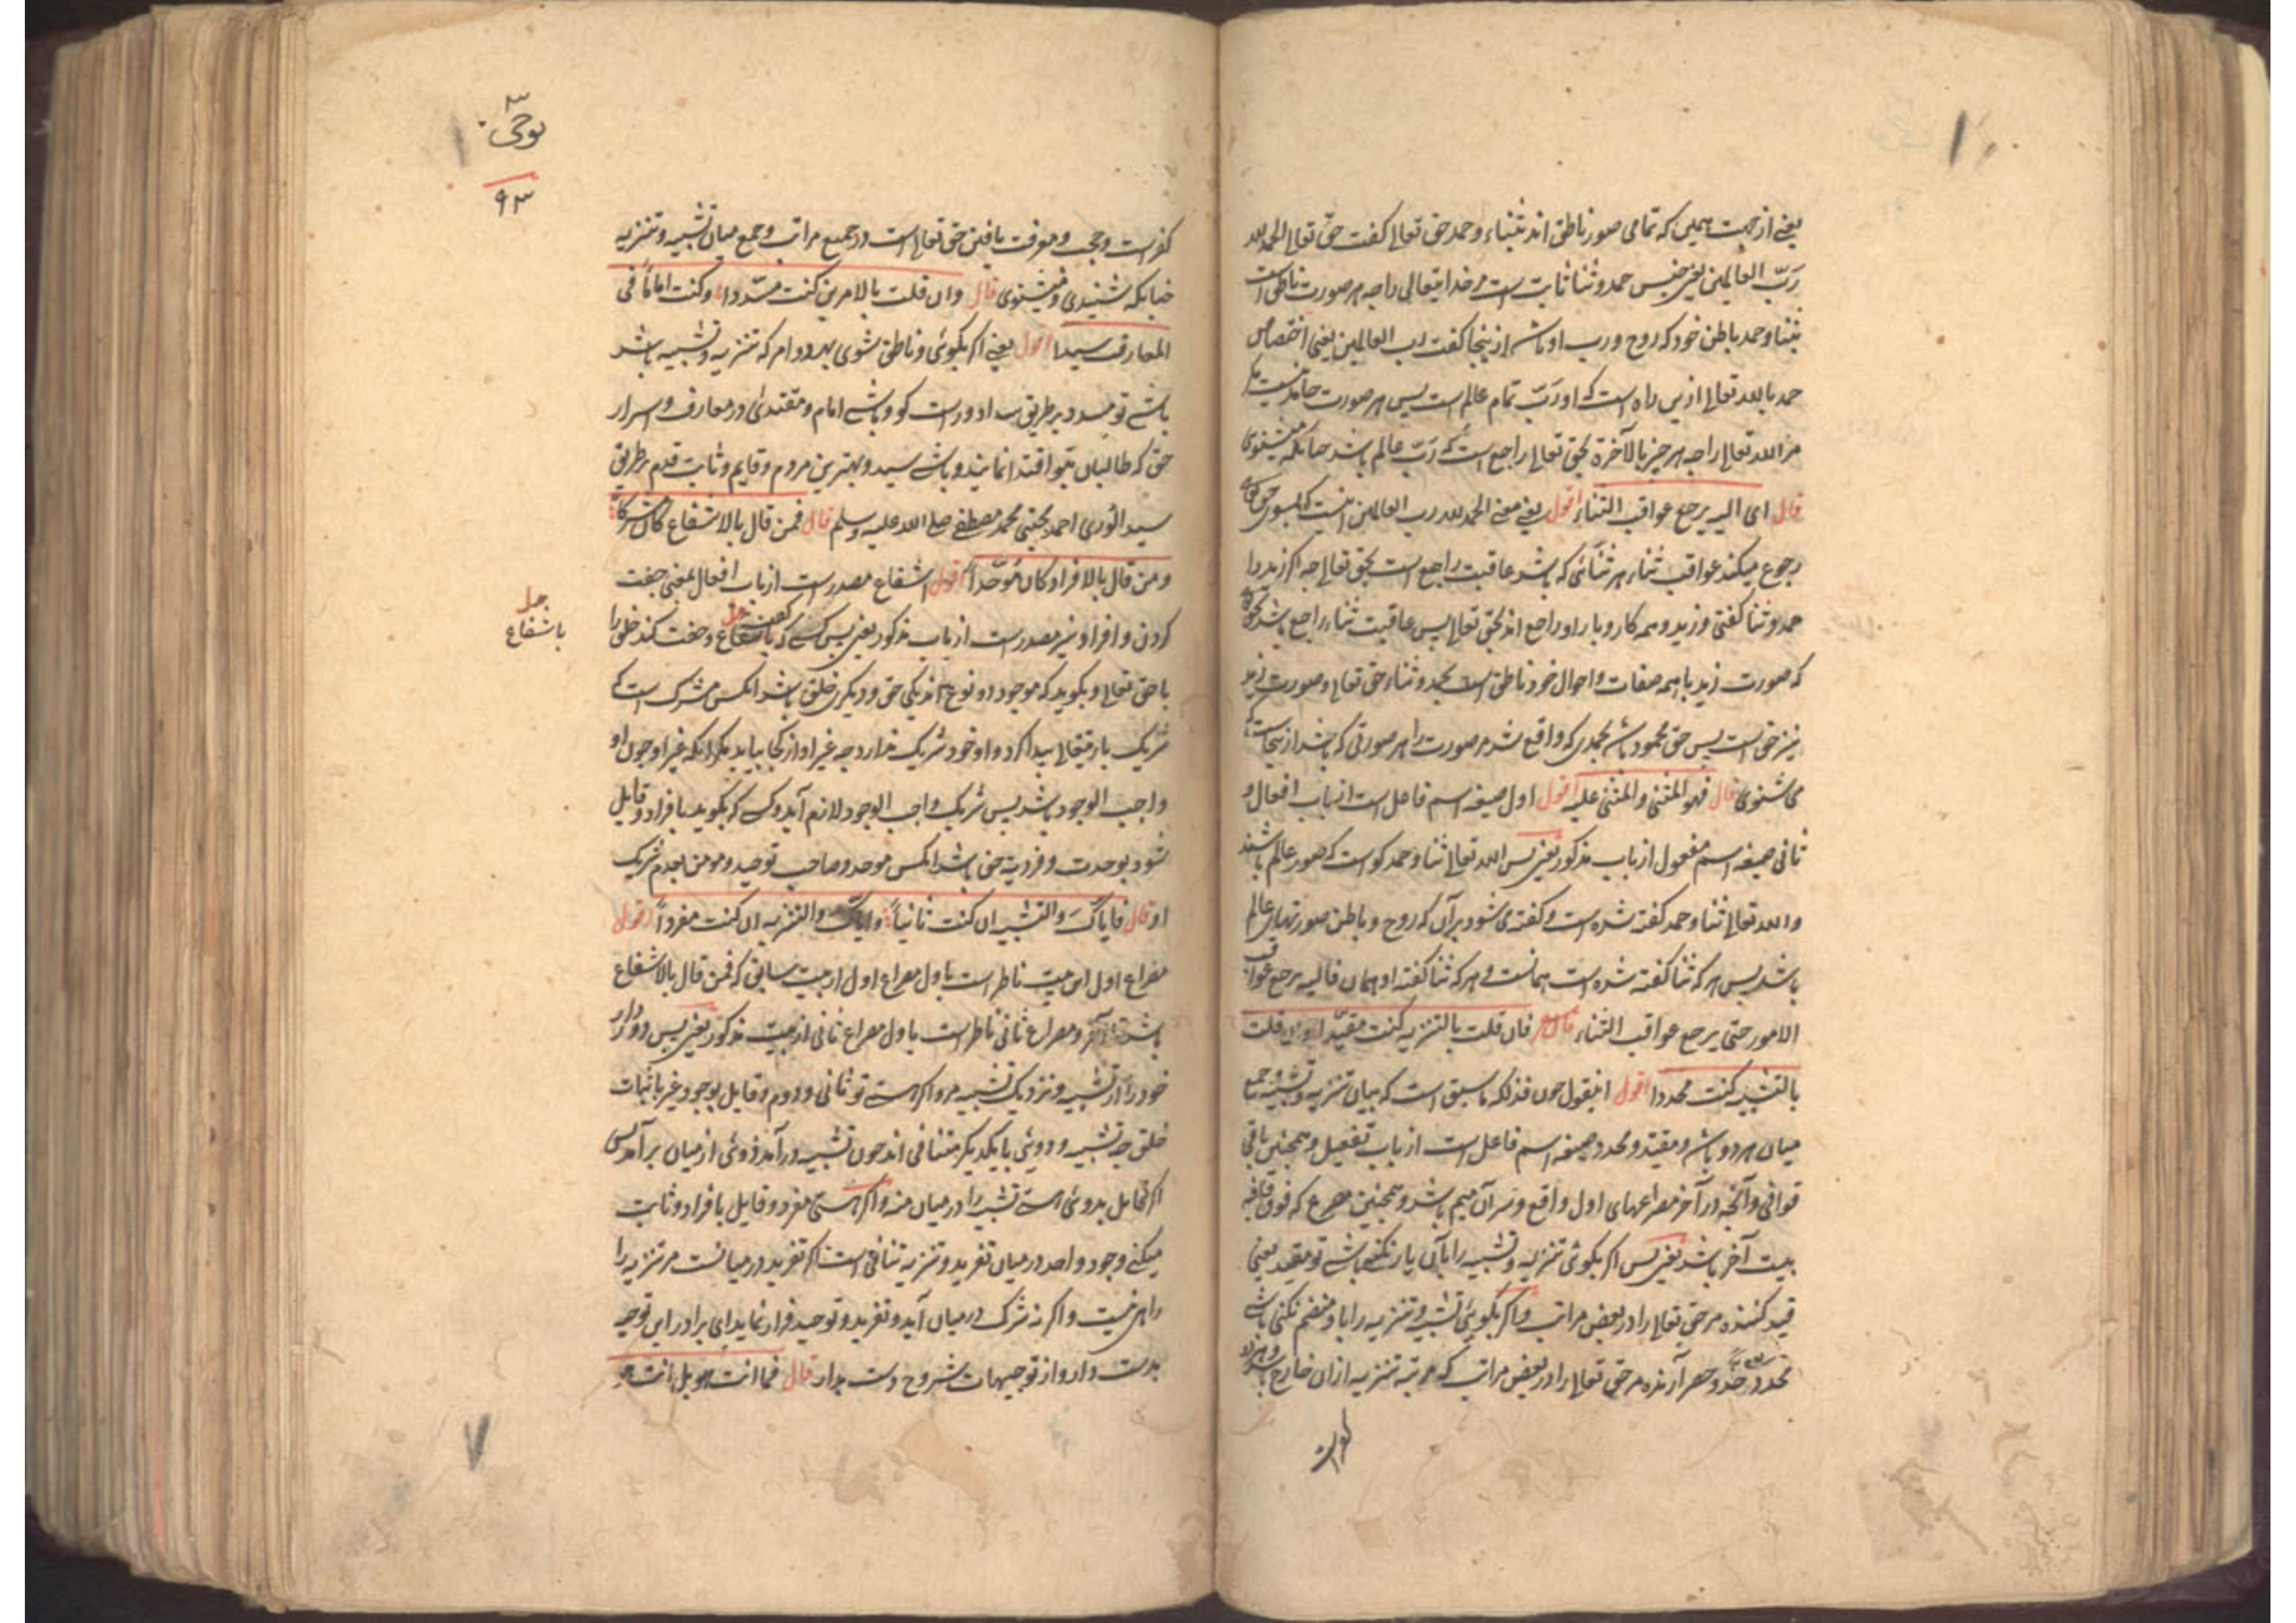 یعنے از جهت همین که تمامی صور ناطق اند بثناء و حمد حق تعالے کفت حق تعالے الحمد لله
رَبّ العالمین یعنی جنس حمد و ثنا ثابت است مر خدایتعالی را چه هر صورت ناطق است
بثنا و حمد باطن خود که روح و رب او باشد از ینجا کفت رب العالمین یعنی اختصاص
حمد بالله تعالے ازین راه است که او رَبّ تمام عالم است پس هر صورت حامد نیست مکر
مر الله تعالے را چه هر چیز بالآخرة بحق تعالے راجع است که رَبّ عالم باشد چنانکه میشنوی
قال ای الیه یرجع عواقب الثناء اقول یعنے معنی الحمد لله رب العالمین اینست که بسوی حق تعالی
رجوع میکند عواقب ثناء هر ثنائی که باشد عاقبت راجع است بحق تعالے چه اکر زید را
حمد و ثنا کفتی و زید و همه کار و بار او راجع اند بحق تعالے پس عاقبت ثناء راجع باشد
که صورت زید با همه صفات و احوال خود ناطق است بحمد و ثناء حق تعالے و صورت زید
نیز حق است پس حق محمود باشد بحمدی که واقع شد مر صورت را هر صورتی که باشد از ینجاست که
می شنوی قال فهو المثنی و المثنی علیه اقول اول صیغه اسم فاعل است از باب افعال و
ثانی صیغه اسم مفعول از باب مذکور یعنی پس الله تعالے ثنا و حمد کو است که صور عالم باشند
و الله تعالے ثنا و حمد کفته شده است و کفته می شود بر آن که روح و باطن صورتهای عالم
باشد پس هر که ثنا کفته شده است همانست و هر که ثنا کفته او همان فالیه یرجع عواقب
الامور حتی یرجع عواقب الثناء قال شعر فان قلت بالتنزیه کنت مقیّدا وان قلت
بالتشبیه کنت محددا اقول اینقول چون فذلکه ما سبق است که بیان تنزیه و تشبیه و جمع
میان هر دو باشد و مقیّد و محدد صیغه اسم فاعل است از باب تفعیل و همچنین باقی
قوافی و آنچه در آخر مصراعهای اول واقع و سر آن میم باشد و همچنین مصرع که فوق قافیه
بیت آخر باشد یعنی پس اکر بکوئی تنزیه و تشبیه را بآن یار نکنی باشے تو مقید یعنی
قید کننده مر حق تعالے را در بعض مراتب و اکر بکوئی تشبیه و تنزیه را با و منضم نکنی باشے
محدد و حد و حصر آرنده مر حق تعالے را در بعض مراتب که مرتبه تنزیه از ان خارج باشد
کفر است و حجب و معرفت یافتن حق تعالے است در جمیع مراتب و جمع میان تشبیه و تنزیه
چنانکه شنیدی و میشنوی قال وان قلت بالامرین کنت مسدّدا وکنت اماماً فی
المعارف سیدا اقول یعنے اکر بکوئی و ناطق شوی بهر دو امر که تنزیه و تشبیه باشد
باشے تو مسدد بر طریق سداد و راست کو و باشے امام و مقتدیٰ در معارف و اسرار
حق که طالبان بتو اقتدا نمایند و باشے سید و بهترین مردم و قایم و ثابت قدم بر طریق
سید الوری احمد مجتبی محمد مصطفے صلے الله علیه وسلم قال فمن قال بالاشفاع کان مشرکاً
ومن قال بالافراد کان مُوَحّداً اقول اشفاع مصدر است از باب افعال بمعنی جفت
کردن و افراد نیز مصدر است از باب مذکور یعنی پس کسے که باشفاع و جفت کند خلق را
با حق تعالے و بکوید که موجود دو نوع اند یکی حق و دیکری خلق باشد انکس مشرک است که
شریک باریتعالے پیدا کرد و او خود شریک ندارد چه غیر او از کجا بیاید مکر انکه غیر او چون او
واجب الوجود باشد پس شریک واجب الوجود لازم آید و کسے که بکوید بافراد و قایل
شود بوحدت و فردیة حق باشد انکس موحد و صاحب توحید و مومن بعدم شریک
او قال فایاکَ والتشبیه ان کنت ثانیاً وایاک والتنزیه ان کنت مفرداً اقول
مصراع اول این بیت ناظر است باول مصراع اول از بیت سابق که فمن قال بالاشفاع
باشد تا آخر و مصراع ثانی ناظر است باول مصراع ثانی از بیت مذکور یعنی پس دور دار
خود را از تشبیه و نزدیک تشبیه مرو اکر هستے تو ثانی و دوم و قایل بوجود غیر باثبات
خلق چه تشبیه و دوئی با یکدیکر متنافی اند چون تشبیه در آمد دوئی از میان برآمد پس
اکر قایل بدوئی هستے تشبیه را در میان منه و اکر هستی مفرد و قایل بافراد و ثابت
میکنے وجود واحد در میان تفرید و تنزیه تنافی است اکر تفرید در میانست مر تنزیه را
راهی نیست و اکر نه شرک در میان آید و تفرید و توحید فرار نماید ای برادر این توجیه
بدست دار و از توجیهات شروح دست بدار قال فما انت هو بل انت هو
جل
باشفاع
نوحی
۹۳
۷